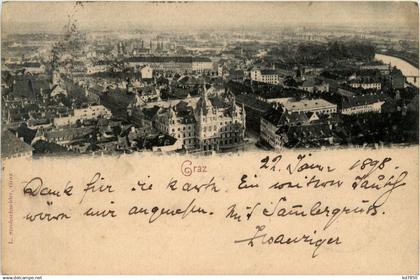 Graz
22. Jänner 1898.
Dank für die Karte. Ein weiterer Tausch
wäre mir angenehm. Mit Sammlergruß
L. Strohschneider, Graz